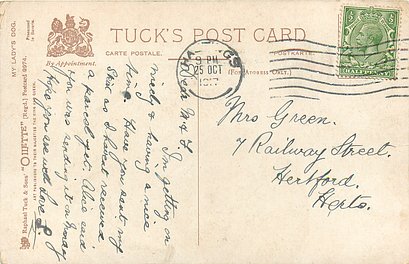 TUCK'S POST CARD
CARTE POSTALE.
POSTKARTE.
By Appointment.
(For Address Only.)
MY LADY'S DOG.
Raphael Tuck & Sons' "OILETTE" [Regd.] Postcard 9974.
ART PUBLISHERS TO THEIR MAJESTIES THE KING & QUEEN.
9 PM
25 OCT
HALFPENNY
Dear M & F.
I'm getting on
nicely & having a nice
time. Have you sent my
Skirt as I havent received
a parcel yet. Alice said
you was sending it on Monday
Hope you are well love
Mrs Green.
7 Railway Street.
Hertford.
Herts.